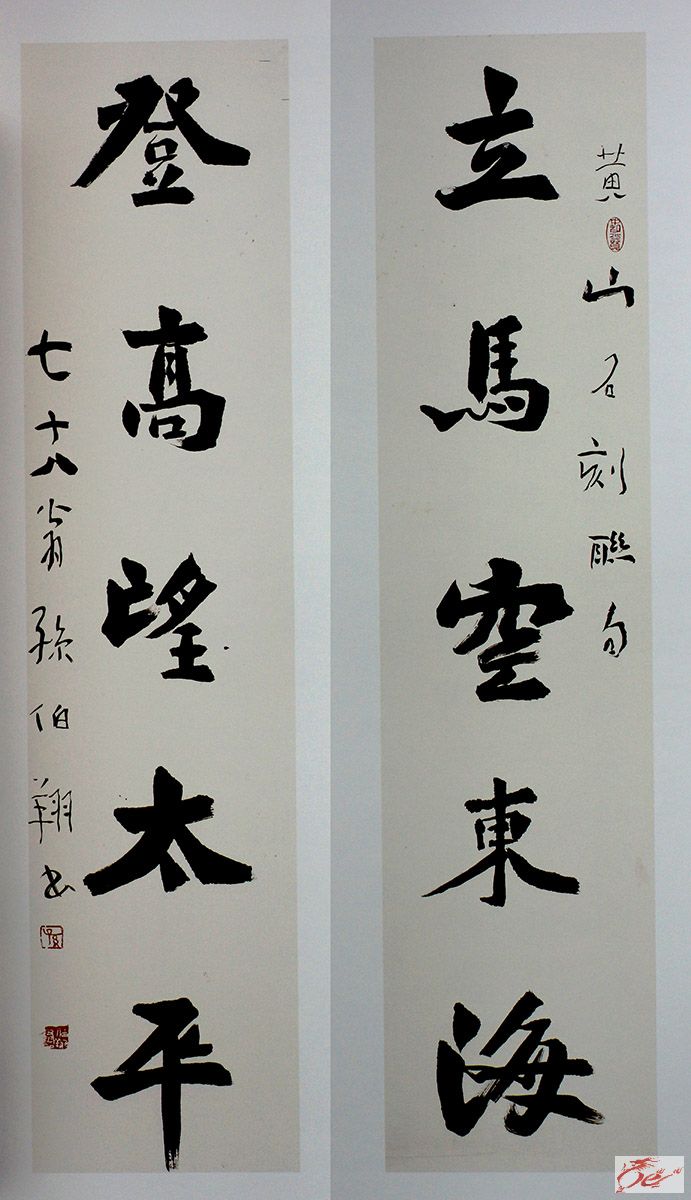 黄山石刻聯句
立馬空東海
登髙望太平
七十八翁孫伯翔書